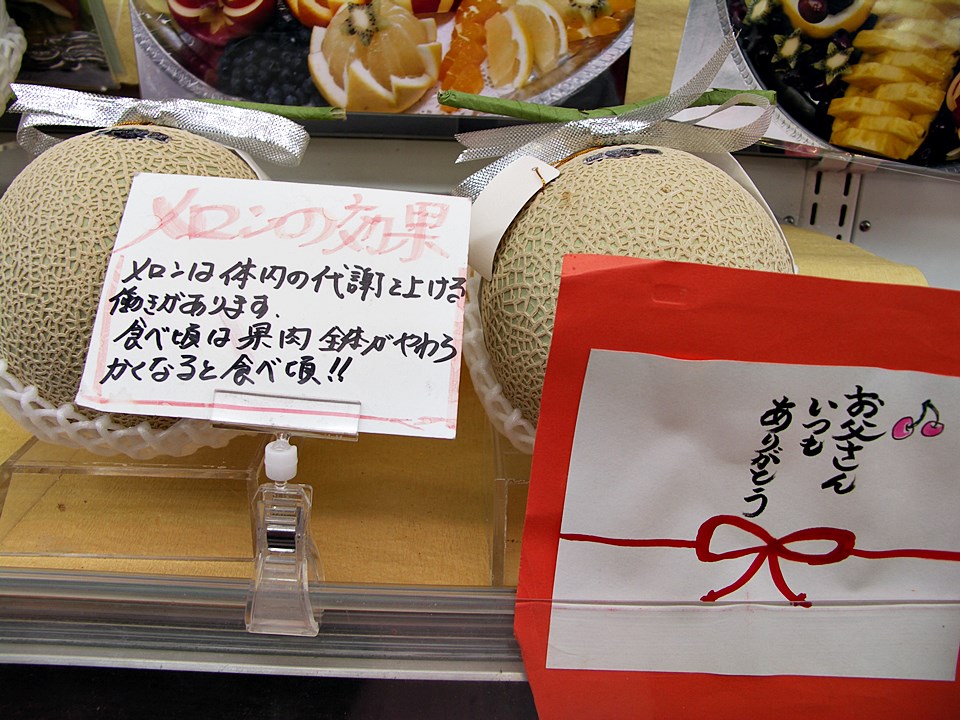 メロンの効果
メロンは体内の代謝を上げる
働きがあります.
食べ頃は果肉全体がやわら
かくなると食べ頃!!
お父さん
いつも
ありがとう